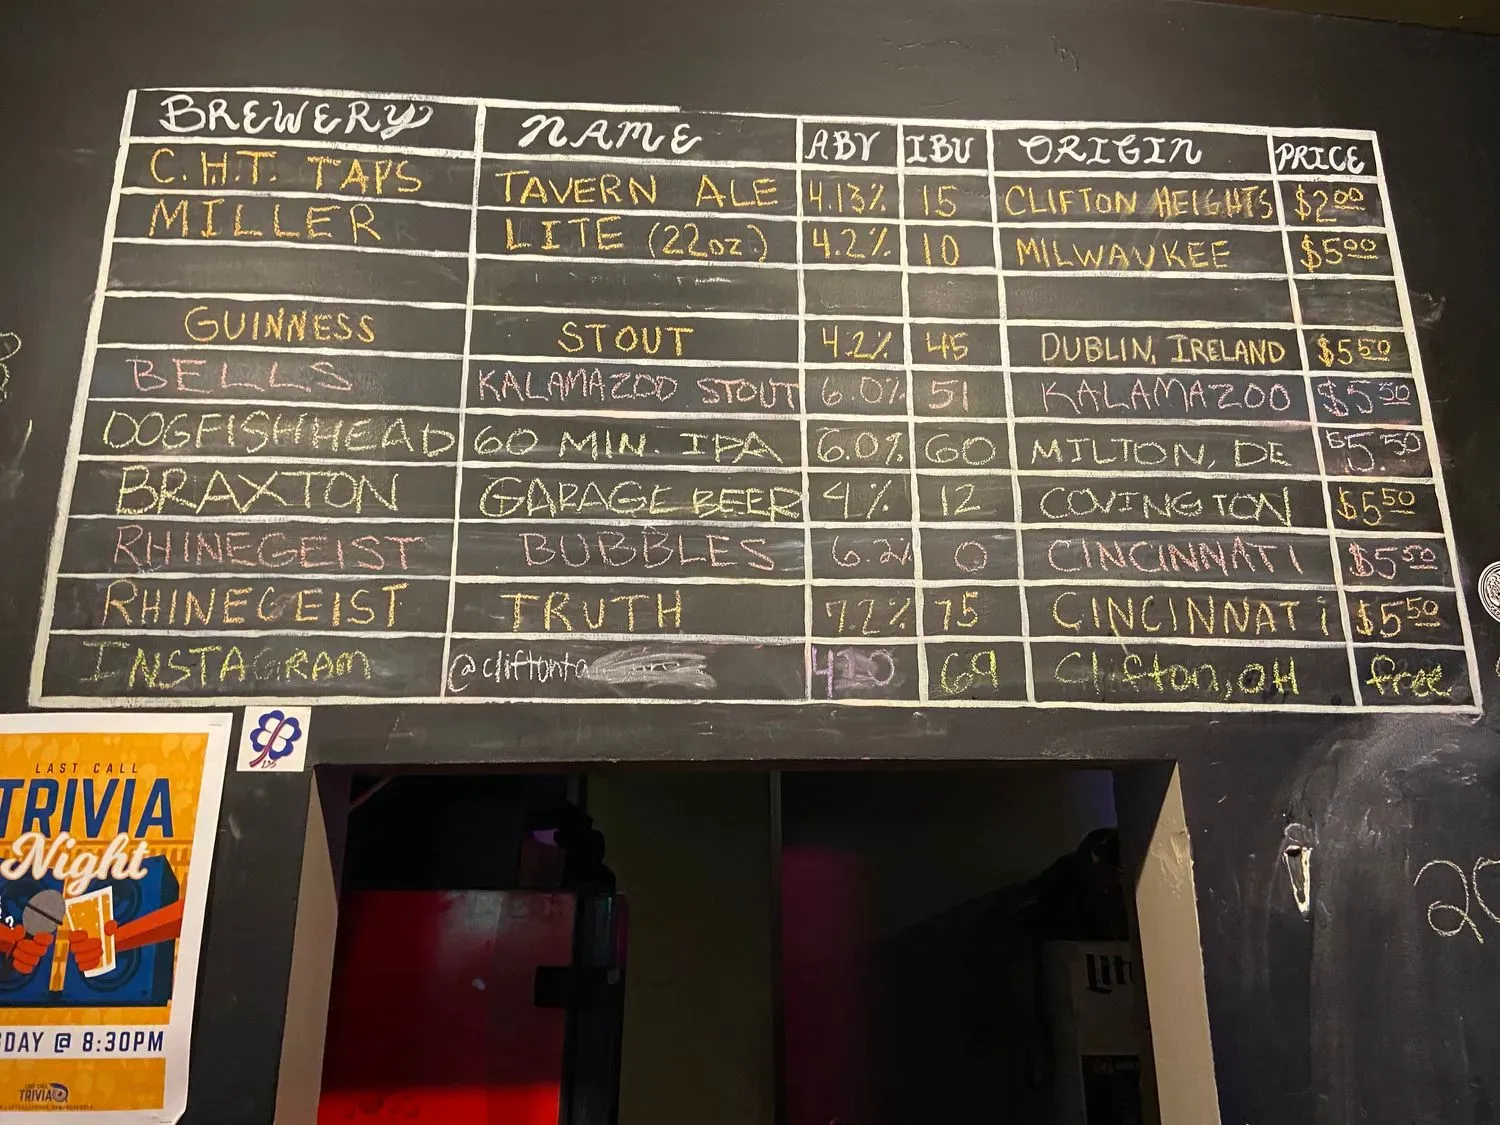 BREWERY NAME ABV IBU ORIGIN PRICE
C.H.T. TAPS TAVERN ALE 4.13% 15 CLIFTON HEIGHTS $2.00
MILLER LITE (22oz.) 4.2% 10 MILWAUKEE $5.00
GUINNESS STOUT 4.2% 45 DUBLIN, IRELAND $5.50
BELLS KALAMAZOO STOUT 6.0% 51 KALAMAZOO $5.50
DOGFISHHEAD 60 MIN. IPA 6.0% 60 MILTON, DE $5.50
BRAXTON GARAGE BEER 4% 12 COVINGTON $5.50
RHINEGEIST BUBBLES 6.2% 0 CINCINNATI $5.50
RHINEGEIST TRUTH 7.2% 75 CINCINNATi $5.50
INSTAGRAM @cliftonta 420 69 Clifton, OH free
LAST CALL
TRIVIA
Night
DAY @ 8:30PM
LAST CALL
TRIVIA